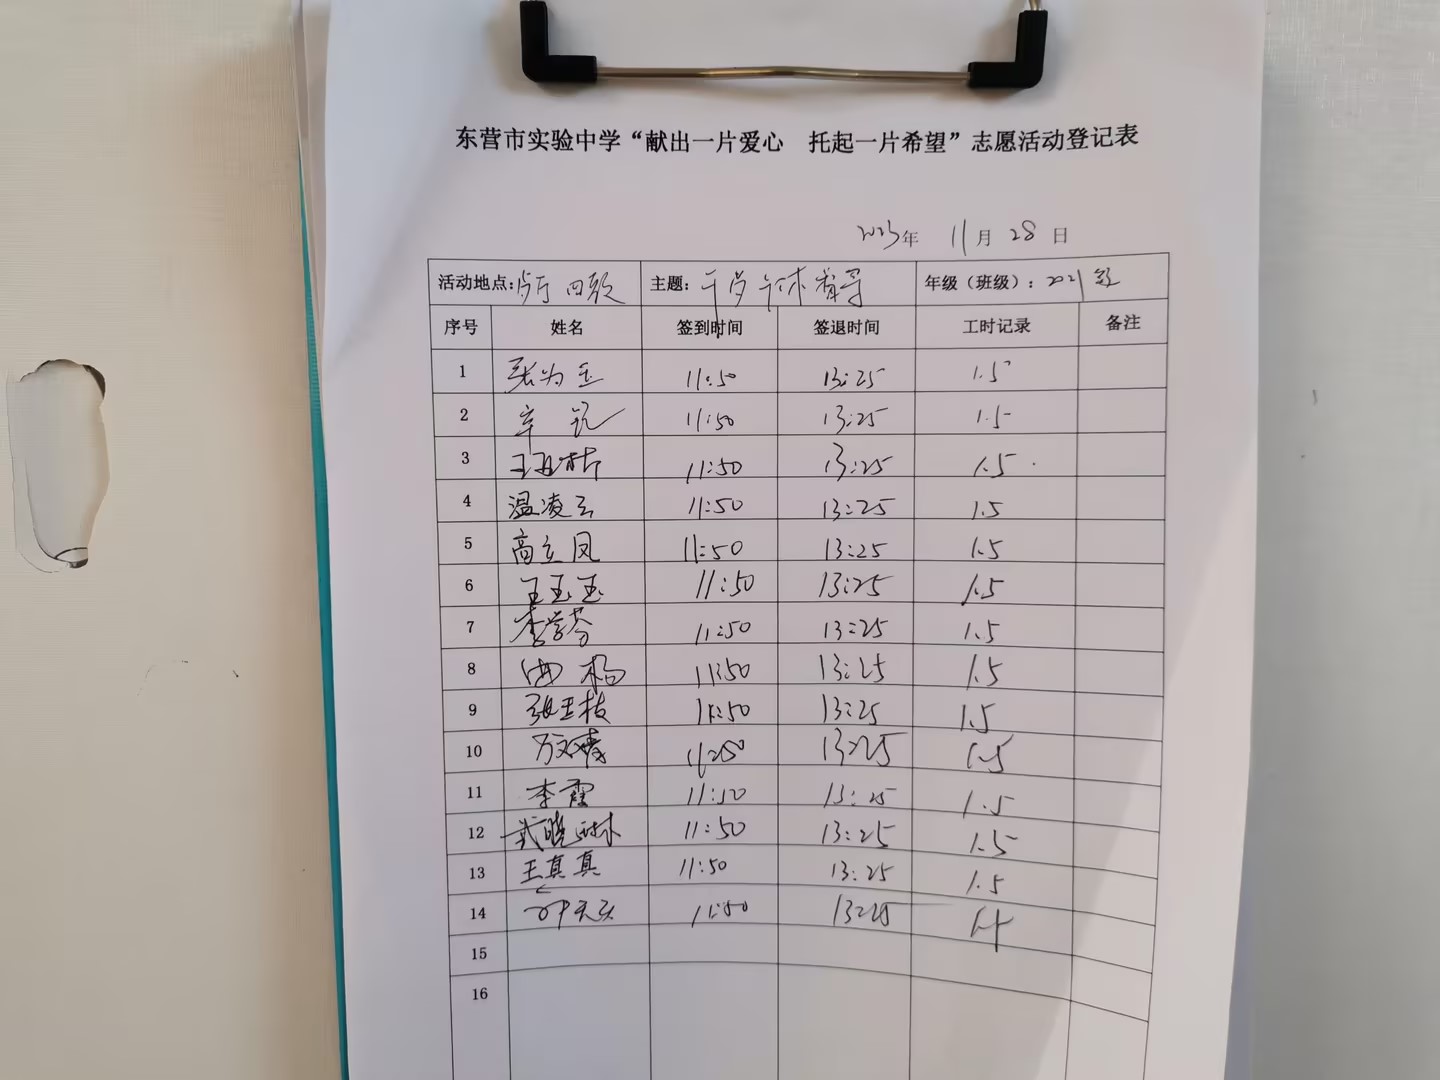 东营市实验中学“献出一片爱心 托起一片希望”志愿活动登记表
2023年 11月 28日
活动地点: 主题: 午休 年级（班级）: 2021级
序号 姓名 签到时间 签退时间 工时记录 备注
1 张为玉 11:50 13:25 1.5
2 辛 11:50 13:25 1.5
3 11:50 13:25 1.5
4 温凌云 11:50 13:25 1.5
5 高立凤 11:50 13:25 1.5
6 王玉玉 11:50 13:25 1.5
7 李学芬 11:50 13:25 1.5
8 杨 11:50 13:25 1.5
9 张玉枝 11:50 13:25 1.5
10 11:50 13:25 1.5
11 李霞 11:50 13:25 1.5
12 武晓琳 11:50 13:25 1.5
13 王真真 11:50 13:25 1.5
14 11:50 13:25
15
16